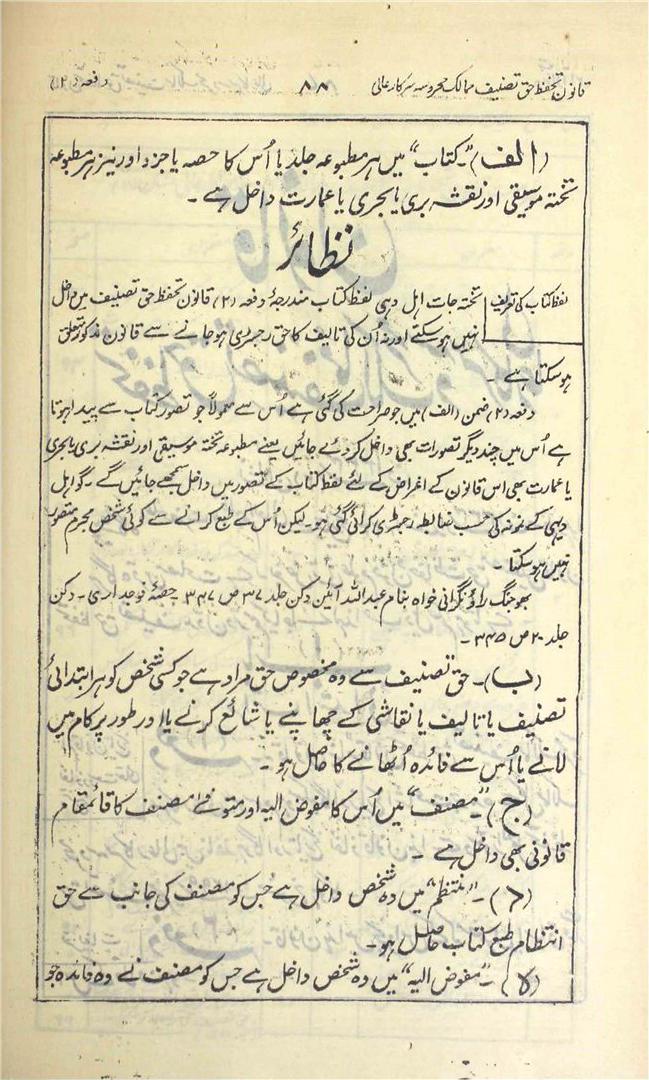 قانون تحفظ حق تصنیف ممالک محروسہ سرکار عالی ۸۸ دفعہ (۲)
(الف)۔ "کتاب" میں ہر مطبوعہ جلد یا اُس کا حصہ یا جزد اور نیز ہر مطبوعہ
تختہ موسیقی اور نقشہ بری یا بحری یا عمارت داخل ہے ۔
نظائر
لفظ کتاب کی تعریف تختہ جات اہل دہی لفظ کتاب مندرجۂ دفعہ (۲) قانون تحفظ حق تصنیف میں داخل
نہیں ہو سکتے اور نہ اُن کی تالیف کا حق رجسٹری ہو جانے سے قانون مذکور متعلق
ہو سکتا ہے ۔
دفعہ (۲) ضمن (الف) میں جو صراحت کی گئی ہے اُس سے معمولاً جو تصور کتاب سے پیدا ہوتا
ہے اُس میں چند دیگر تصورات بھی داخل کر دئے جائیں یعنے مطبوعہ تختہ موسیقی اور نقشہ بری یا بحری
یا عمارت بھی اس قانون کے اغراض کے لئے لفظ کتاب کے تصور میں داخل سمجھے جائیں گے ۔ گو اہل
دیہی کے نمونہ کی حسب ضابطہ رجسٹری کرائی گئی ہو۔ لیکن اُس کے طبع کرانے سے کوئی شخص مجرم متصور
نہیں ہو سکتا ۔
بھوجنگ راؤ نگرانی خواہ بنام عبداللہ آئین دکن جلد ۳۷ ص ۳۴۷ حصۂ فوجداری ۔ دکن
جلد ۲۰ ص ۳۴۵ ۔
(ب)۔ حق تصنیف سے وہ مخصوص حق مراد ہے جو کسی شخص کو ہر ابتدائی
تصنیف یا تالیف یا نقاشی کے چھاپنے یا شائع کرنے یا اور طور پر کام میں
لانے یا اُس سے فائدہ اُٹھانے کا حاصل ہو ۔
(ج)۔ "مصنف" میں اُس کا مفوض الیہ اور متوفی مصنف کا قائمقام
قانونی بھی داخل ہے ۔
(د)۔ "منتظم" میں وہ شخص داخل ہے جس کو مصنف کی جانب سے حق
انتظام طبع کتاب حاصل ہو۔
(ہ)۔ "مفوض الیہ" میں وہ شخص داخل ہے جس کو مصنف نے وہ فائدہ جو